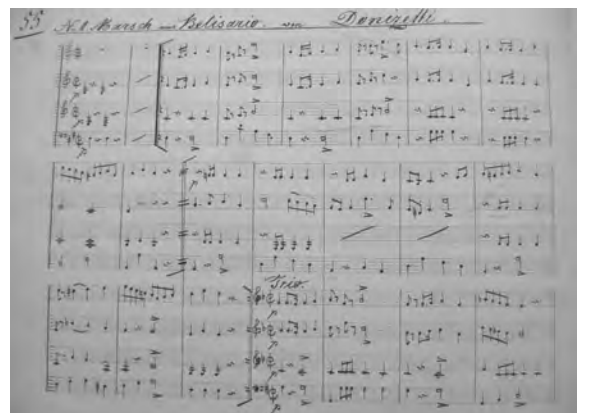 55 N.8. Marsch Belisario. von Donizetti.
Trio.